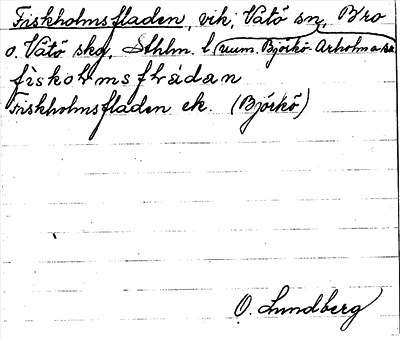 Fiskholmsfladen, vik, Vätö sn, Bro
o. Vätö skg, Sthlm. l (num. Björkö-Arholma sn
fiskoɫmsflàdan
Fiskholmsfladen ek. (Björkö)
O. Lundberg